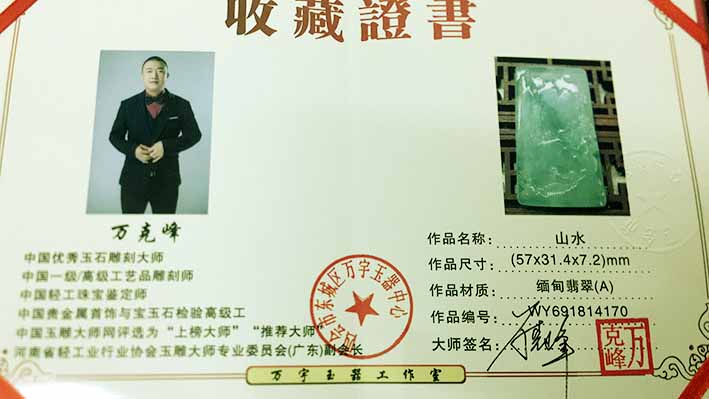 收藏證書
万克峰
中国优秀玉石雕刻大师
中国一级/高级工艺品雕刻师
中国轻工珠宝鉴定师
中国贵金属首饰与宝玉石检验高级工
中国玉雕大师网评选为“上榜大师” “推荐大师”
河南省轻工业行业协会玉雕大师专业委员会(广东)副会长
四会市东城区万宇玉器中心
作品名称: 山水
作品尺寸: (57x31.4x7.2)mm
作品材质: 缅甸翡翠(A)
作品编号: WY691814170
大师签名: 万克峰
万克峰
万宇玉器工作室